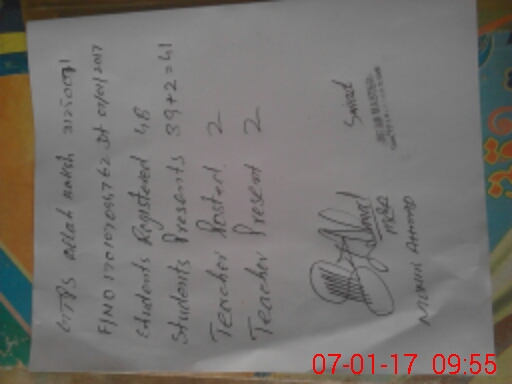 GTPS Allah Baksh 31250071
FINO 170107095762 Dt 07/01/2017
Students Registered 48
Students Presents 39+2=41
Teacher Posted 2
Teacher Present 2
Munir Ahmad
07-01-17 09:55